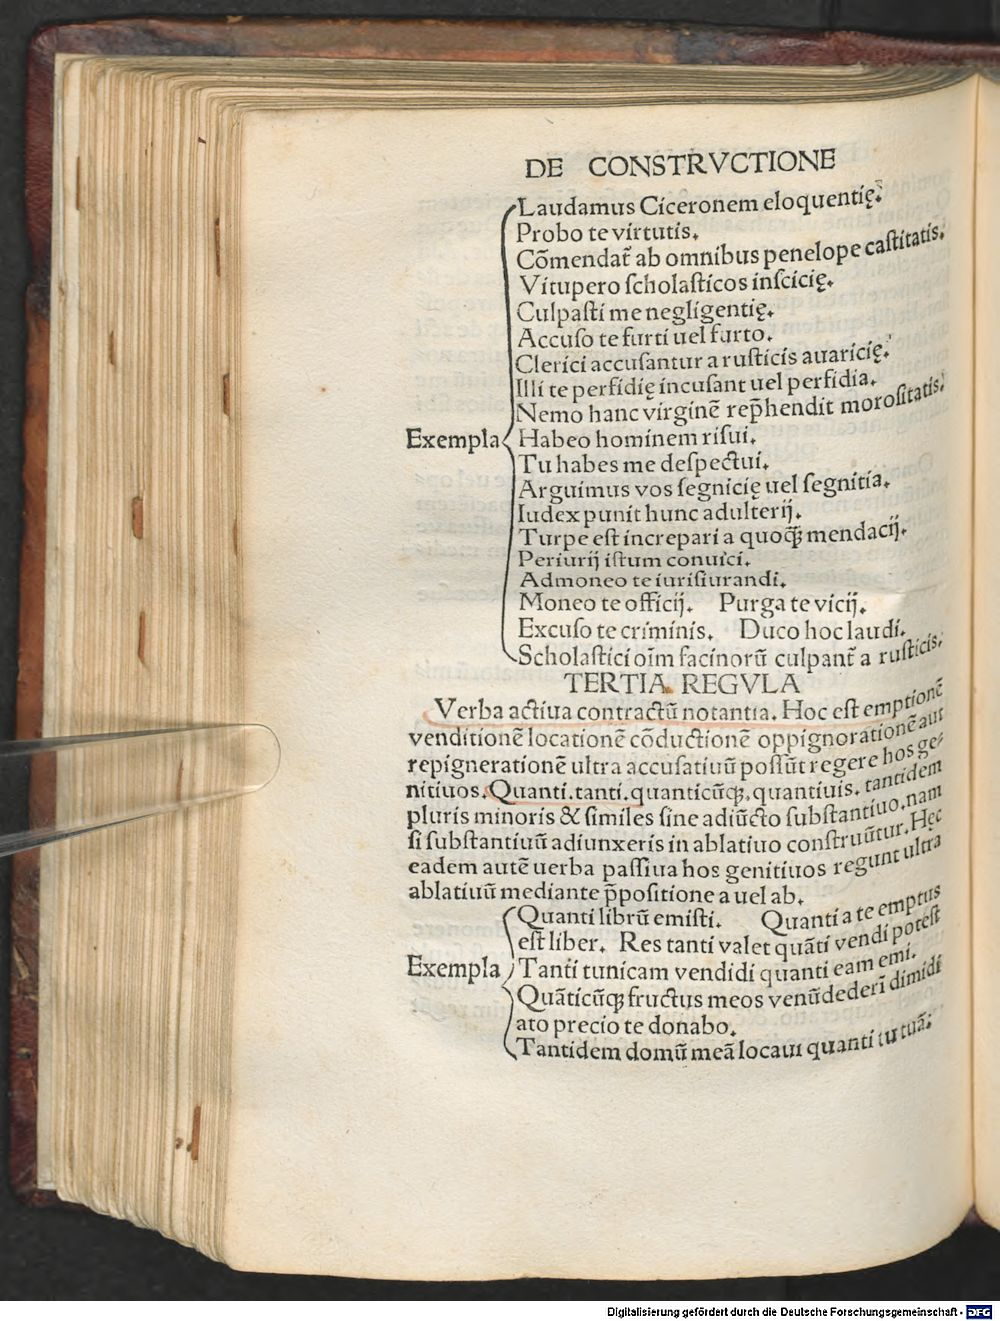 DE CONSTRVCTIONE
Laudamus Ciceronem eloquentię.
Probo te virtutis.
Cõmendat̃ ab omnibus penelope caſtitatis.
Vitupero ſcholaſticos inſcicię.
Culpaſti me negligentię.
Accuſo te furti uel furto.
Clerici accuſantur a ruſticis auaricię.
Illi te perfidię incuſant uel perfidia.
Nemo hanc virginẽ rep̃hendit moroſitatis.
Exempla Habeo hominem riſui.
Tu habes me deſpectui.
Arguimus vos ſegnicię uel ſegnitia.
Iudex punit hunc adulterij.
Turpe eſt increpari a quoqꝫ mendacij.
Periurij iſtum conuici.
Admoneo te iuriſiurandi.
Moneo te officij. Purga te vicij.
Excuſo te criminis. Duco hoc laudi.
Scholaſtici oĩm facinorũ culpant̃ a ruſticis.
TERTIA REGVLA
Verba actiua contractũ notantia. Hoc eſt emptionẽ
venditionẽ locationẽ cõductionẽ oppignorationẽ aut
repignerationẽ ultra accuſatiuũ poſſũt regere hos ge⸗
nitiuos. Quanti. tanti. quanticũqꝫ. quantiuis. tantidem
pluris minoris & ſimiles ſine adiũcto ſubſtantiuo. nam
ſi ſubſtantiuũ adiunxeris in ablatiuo conſtruũtur. Hęc
eadem autẽ uerba paſſiua hos genitiuos regunt ultra
ablatiuũ mediante p̃poſitione a uel ab.
Quanti librũ emiſti. Quanti a te emptus
eſt liber. Res tanti valet quãti vendi poteſt
Exempla Tanti tunicam vendidi quanti eam emi.
Quãticũqꝫ fructus meos venũdederĩ dimidi
ato precio te donabo.
Tantidem domũ meã locaui quanti tu tuã.
Digitalisierung gefördert durch die Deutsche Forschungsgemeinschaft - DFG